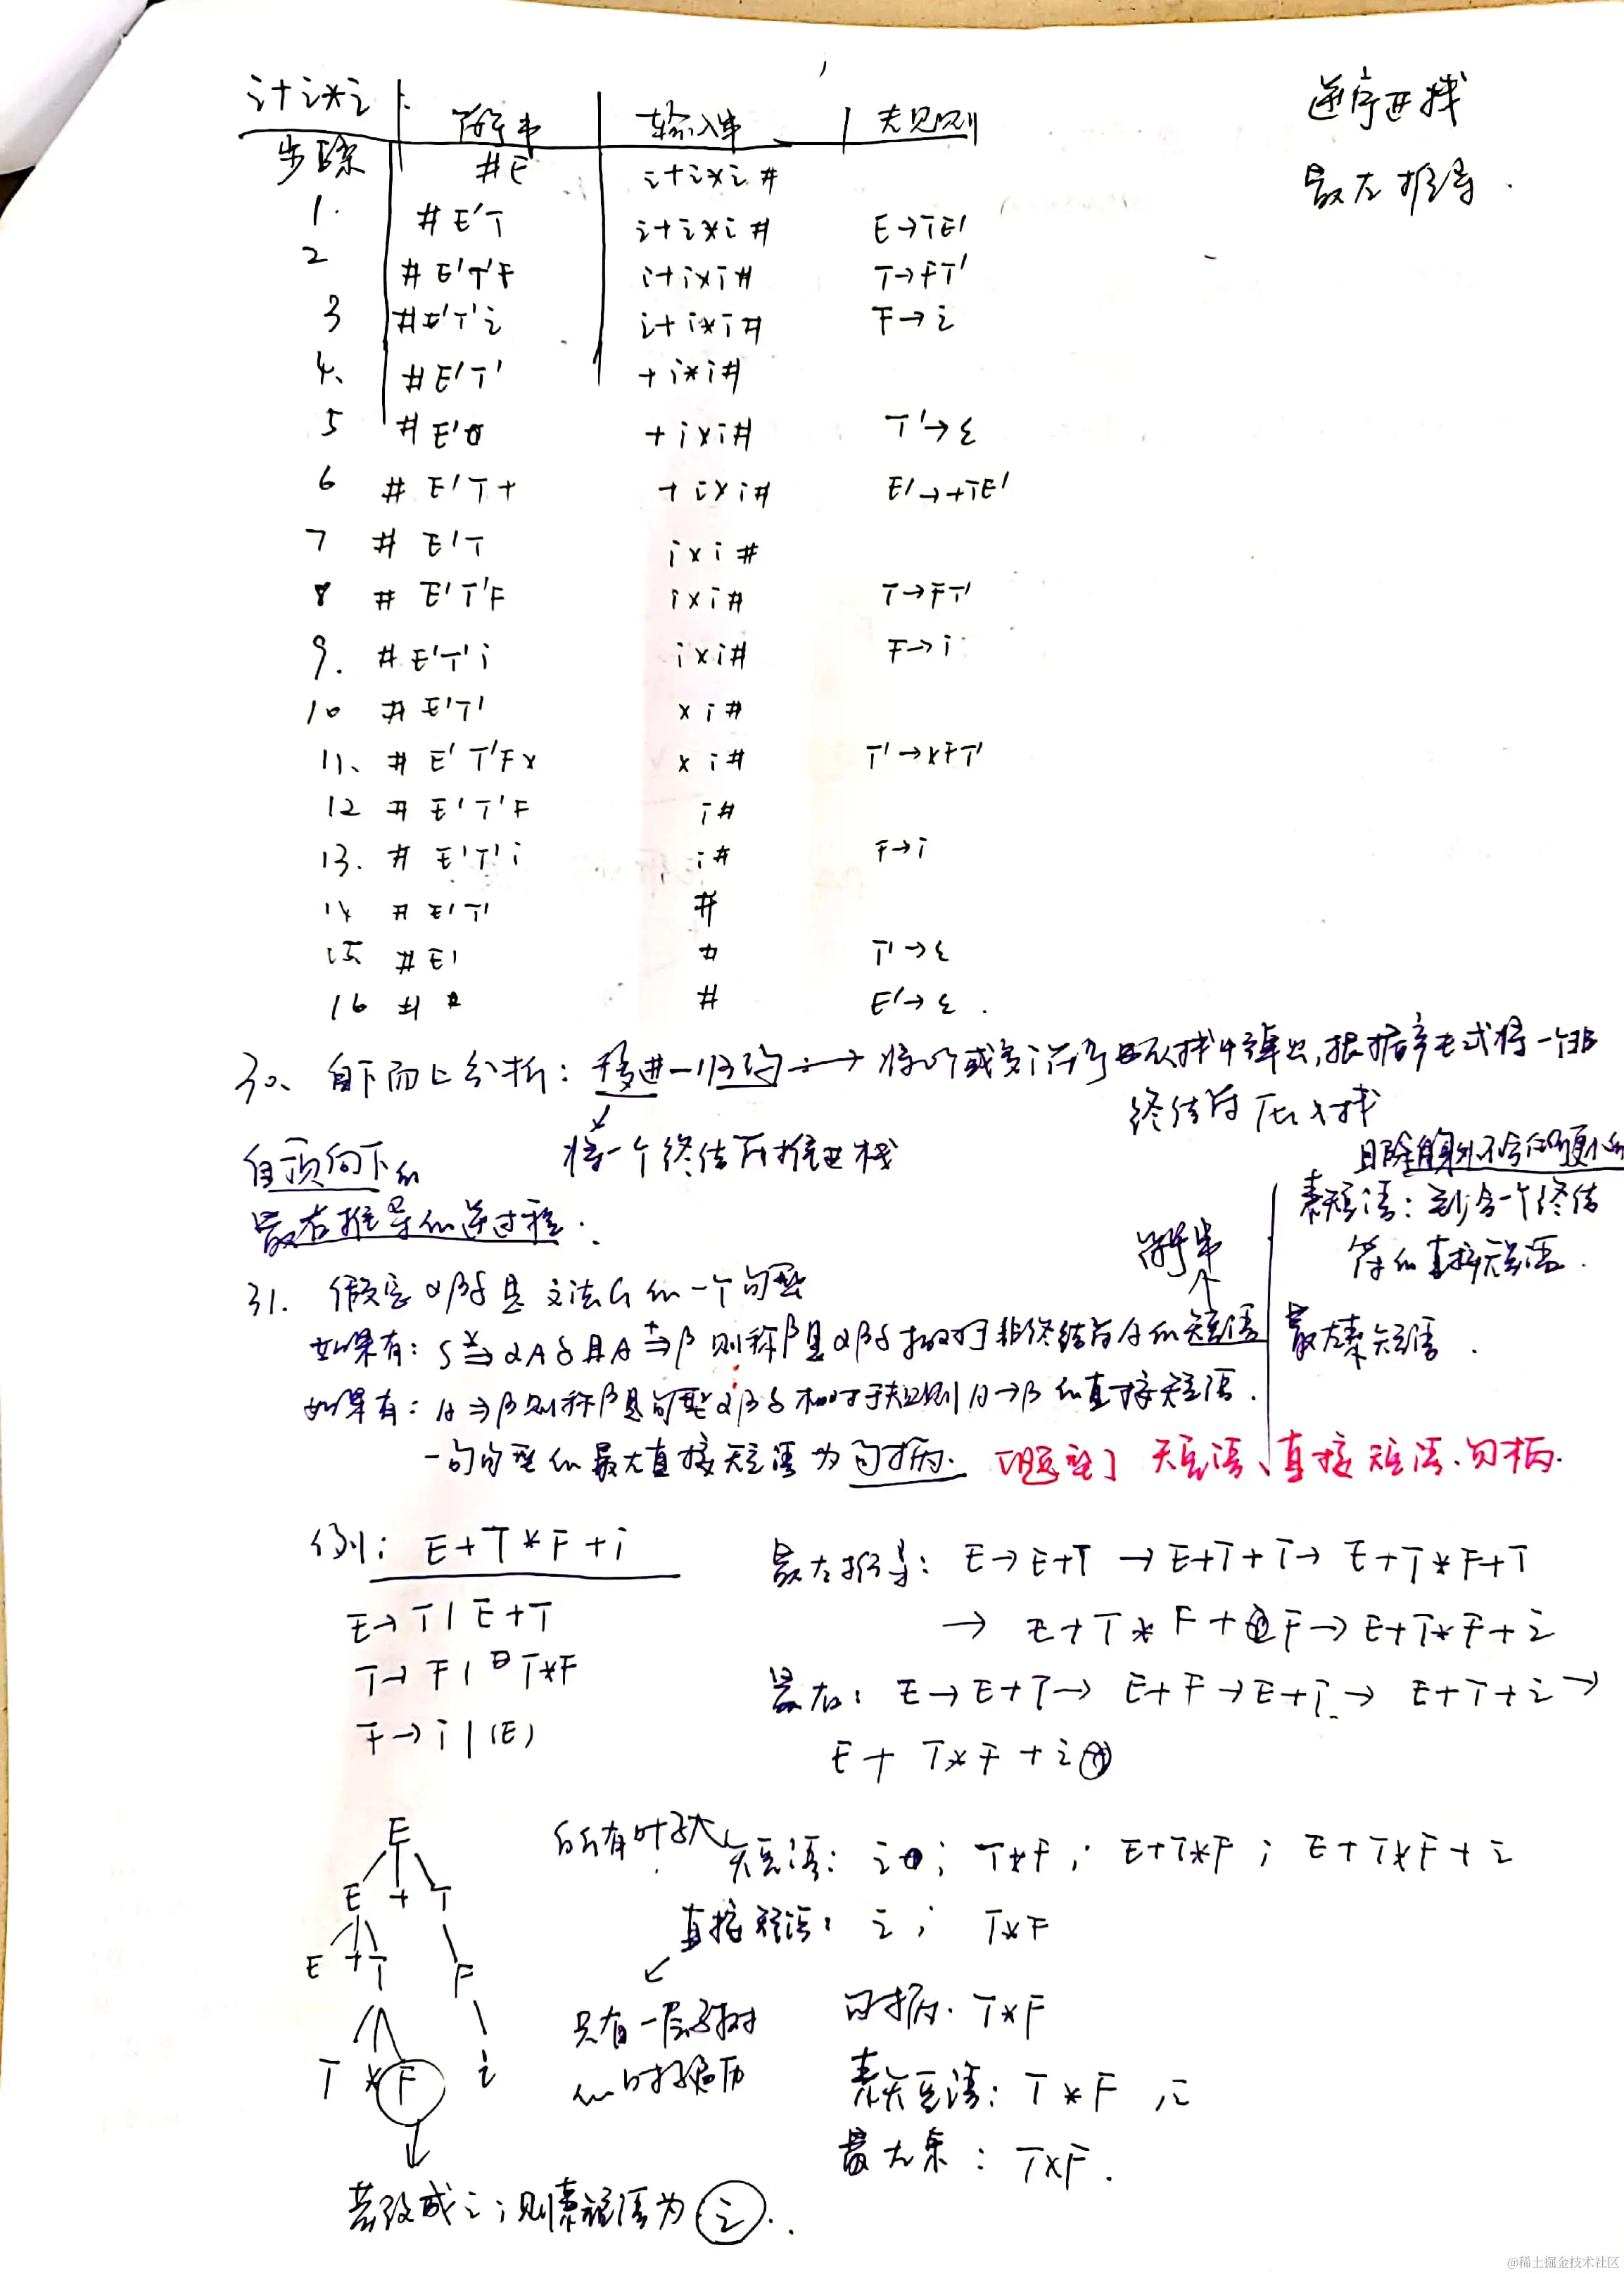 i+i*i 符号串 输入串 规则
步骤 #E i+i*i#
逆序进栈
最左推导.
1. #E'T i+i*i# E→TE'
2 #E'T'F i+i*i# T→FT'
3 #E'T'i i+i*i# F→i
4、 #E'T' +i*i#
5 #E' +i*i# T'→ε
6 #E'T+ +i*i# E'→+TE'
7 #E'T i*i#
8 #E'T'F i*i# T→FT'
9. #E'T'i i*i# F→i
10 #E'T' *i#
11、 #E'T'F* *i# T'→*FT'
12 #E'T'F i#
13. #E'T'i i# F→i
14 #E'T' #
15 #E' # T'→ε
16 # # E'→ε.
30、自下而上分析：移进—归约→将一个或多个符号从栈中弹出,根据产生式将一个非
终结符压入栈
将一个终结符推进栈
自顶向下的
最右推导的逆过程.
且除自身外不含
素短语：至少含一个终结
符的直接短语.
最左素短语.
符号串
31. 假定αβδ是文法G的一个句型
如果有：S*⇒αAδ且A+⇒β则称β是αβδ相对于非终结符A的短语
如果有：A⇒β则称β是句型αβδ相对于规则A→β的直接短语.
一句句型的最左直接短语为句柄. [题型] 短语、直接短语、句柄.
例：E+T*F+i
E→T|E+T
T→F|T*F
F→i|(E)
最左推导：E→E+T→E+T+T→E+T*F+T
→E+T*F+F→E+T*F+i
最右：E→E+T→E+F→E+i→E+T+i→
E+T*F+i
E
E + T
E + T F
T * F i
所有叶子
短语：i；T*F；E+T*F；E+T*F+i
直接短语：i；T*F
只有一层子树
的叶子遍历
句柄. T*F
素短语：T*F,i
最左素：T*F.
若改成i；则素短语为i..
@稀土掘金技术社区